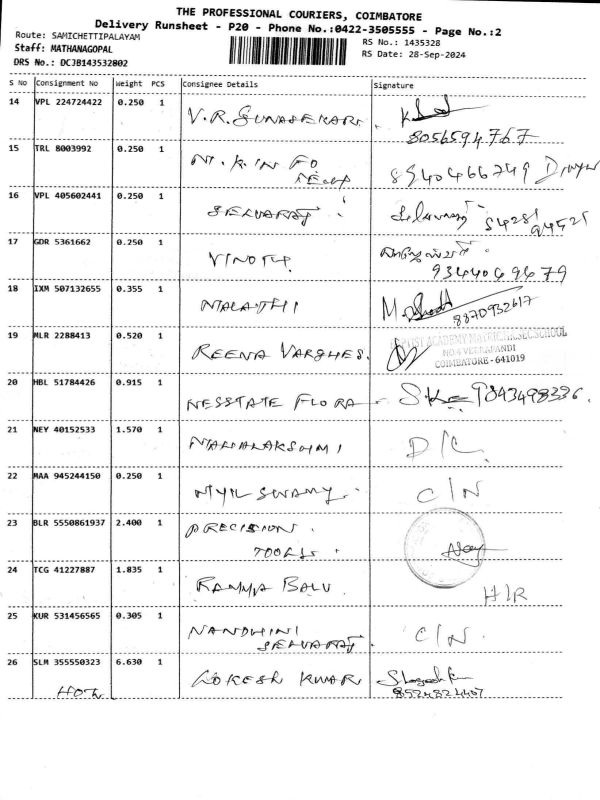 THE PROFESSIONAL COURIERS, COIMBATORE
Delivery Runsheet - P20 - Phone No.:0422-3505555 - Page No.:2
Route: SAMICHETTIPALAYAM
RS No.: 1435328
Staff: MATHANAGOPAL
RS Date: 28-Sep-2024
DRS No.: DCJB143532802
S No Consignment No Weight PCS Consignee Details Signature
14 VPL 224724422 0.250 1 V.R.GUNASEKARAN
8056594767
15 TRL 8003992 0.250 1 N.K.INFO
8940466749
16 VPL 405602441 0.250 1 SELVARAJ
17 GDR 5361662 0.250 1 VINOTH
9344069479
18 IXM 507132655 0.355 1 MALATHI
8870932617
19 MLR 2288413 0.520 1 REENA VARGHES.
BAPTIST ACADEMY MATRIC.HR.SEC.SCHOOL
NO.4 VEERAPANDI
COIMBATORE - 641019
20 HBL 51784426 0.915 1 NESSTATE FLORA 9843498336.
21 NEY 40152533 1.570 1 MAHALAKSHMI D/C
22 MAA 945244150 0.250 1 MYIL SWAMY. C/N
23 BLR 5550861937 2.400 1 PRECISION.
TOOLLS.
24 TCG 41227887 1.835 1 RAMYA BALU H/R
25 KUR 531456565 0.305 1 NANDHINI C/N.
SELVARAJ.
26 SLM 355550323 6.630 1 LOKESH KUMAR
8524824407